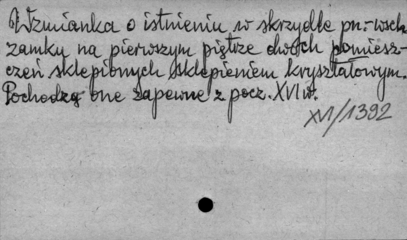 Wzmianka o istnieniu w skrzydle pn.-wsch.
zamku na pierwszym piętrze dwóch pomiesz-
czeń sklepionych sklepieniem kryształowym.
Pochodzą one zapewne z pocz. XVI w.
XVI/1392